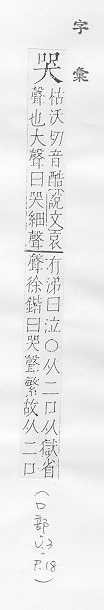 字彙
哭
枯沃切音酷說文哀
聲也大聲曰哭細聲
有涕曰泣○从二口从獄省
聲徐鍇曰哭聲繁故从二口
(口部 P.18)